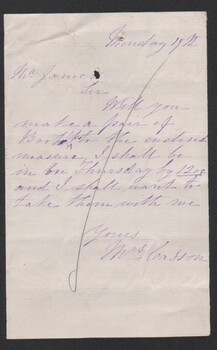 Monday 19th
Mr James
Sir
Will you
make a pair of
Boots to the enclosed
measure, I shall be
in on Thursday by 12 oc
and I shall want to
take them with me
Yours
Mrs